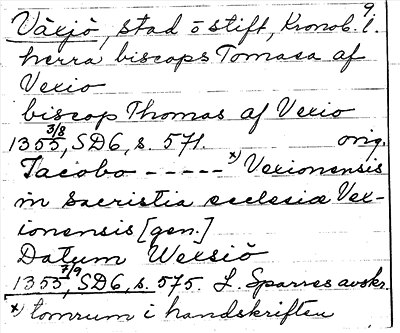 9.
Växjö, stad o stift, Kronob. l.
herra biscops Tomasa af
Vexio
biscop Thomas af Vexio
1355 3/8, SD6, s. 571. orig.
Jacobo - - - - - x) Vexionensis
in sacristia ecclesiæ Vex-
ionensis [gen.]
Datum Wexsiö
1355 7/9, SD6, s. 575. L. Sparres avskr.
x) tomrum i handskriften